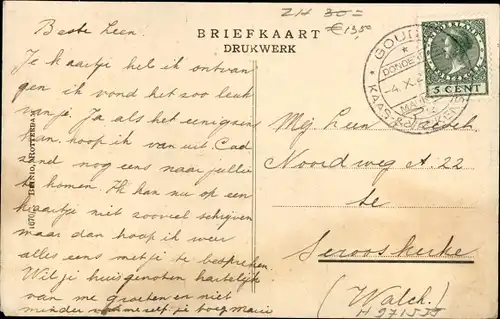 ZH 80 =
€ 13,50
BRIEFKAART
DRUKWERK
GOUD
DONDE
-4.X.
MA
KAAS
5 CENT
Beste Leen.
Je kaartje heb ik ontvan
gen ik vond het zoo leuk
van je. Ja als het eenigsins
kan, hoop ik van uit Cad
zand nog eens naar jullie
te komen. Ik kan nu op een
kaartje niet zooveel schrijven
maar dan hoop ik weer
alles eens met je te bespreken.
Wil je huisgenoten hartelijk
van me groeten en niet
minder van mezelf je toeg Marie
Mej Leen
Noordweg A. 22
te
Serooskerke
(Walch.)
H 971555